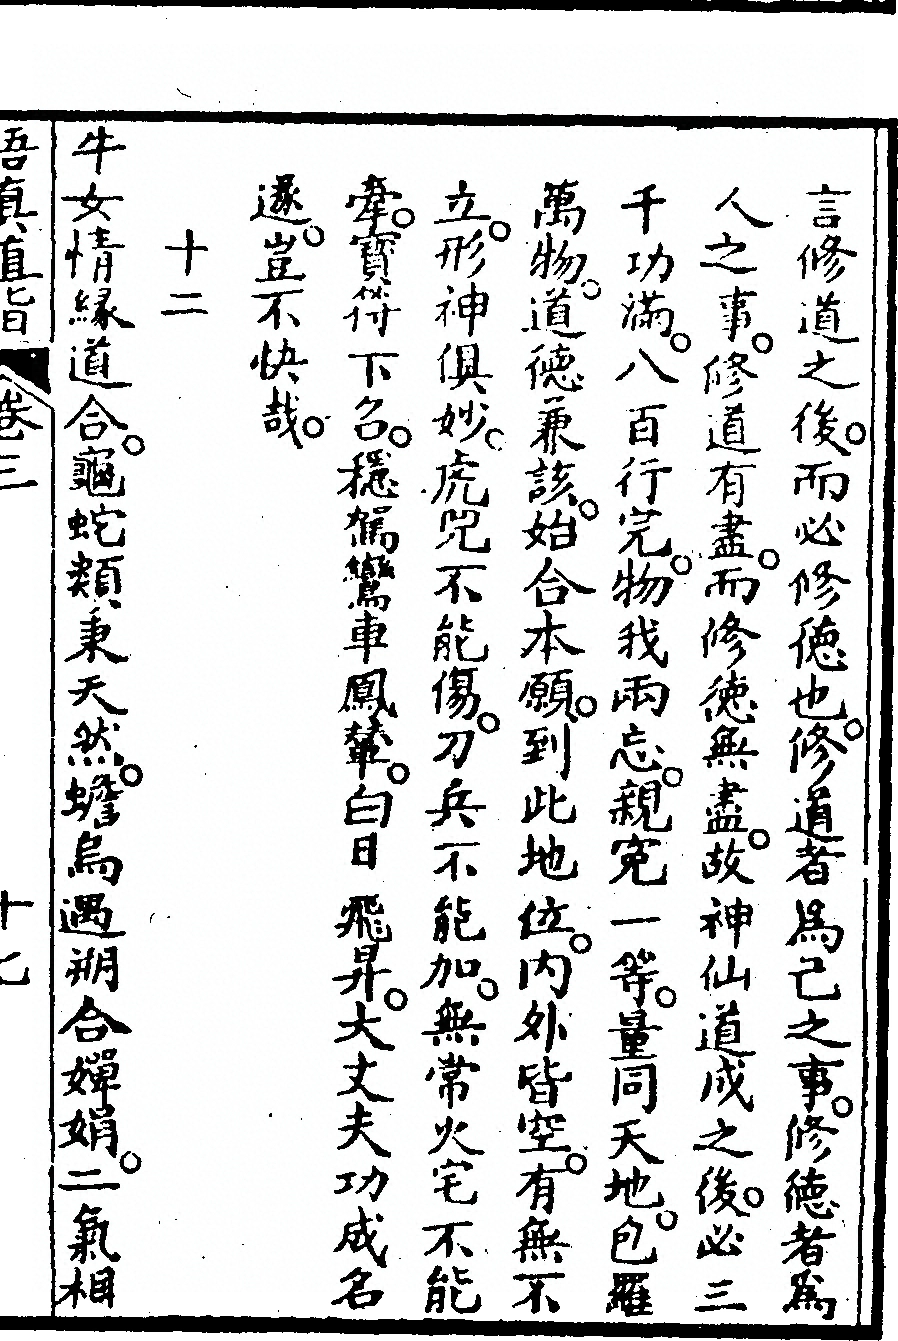 言修道之後。而必修德也。修道者爲己之事。修德者爲
人之事。修道有盡。而修德無盡。故神仙道成之後。必三
千功滿。八百行完。物我兩忘。親冤一等。量同天地。包羅
萬物。道德兼該。始合本願。到此地位。內外皆空。有無不
立。形神俱妙。虎兕不能傷。刀兵不能加。無常火宅不能
牽。寶符下名。穩駕鸞車鳳輦。白日飛昇。大丈夫功成名
遂。豈不快哉。
十二
牛女情緣道合。龜蛇類秉天然。蟾烏遇朔合嬋娟。二氣相
悟真直指 卷三 十七